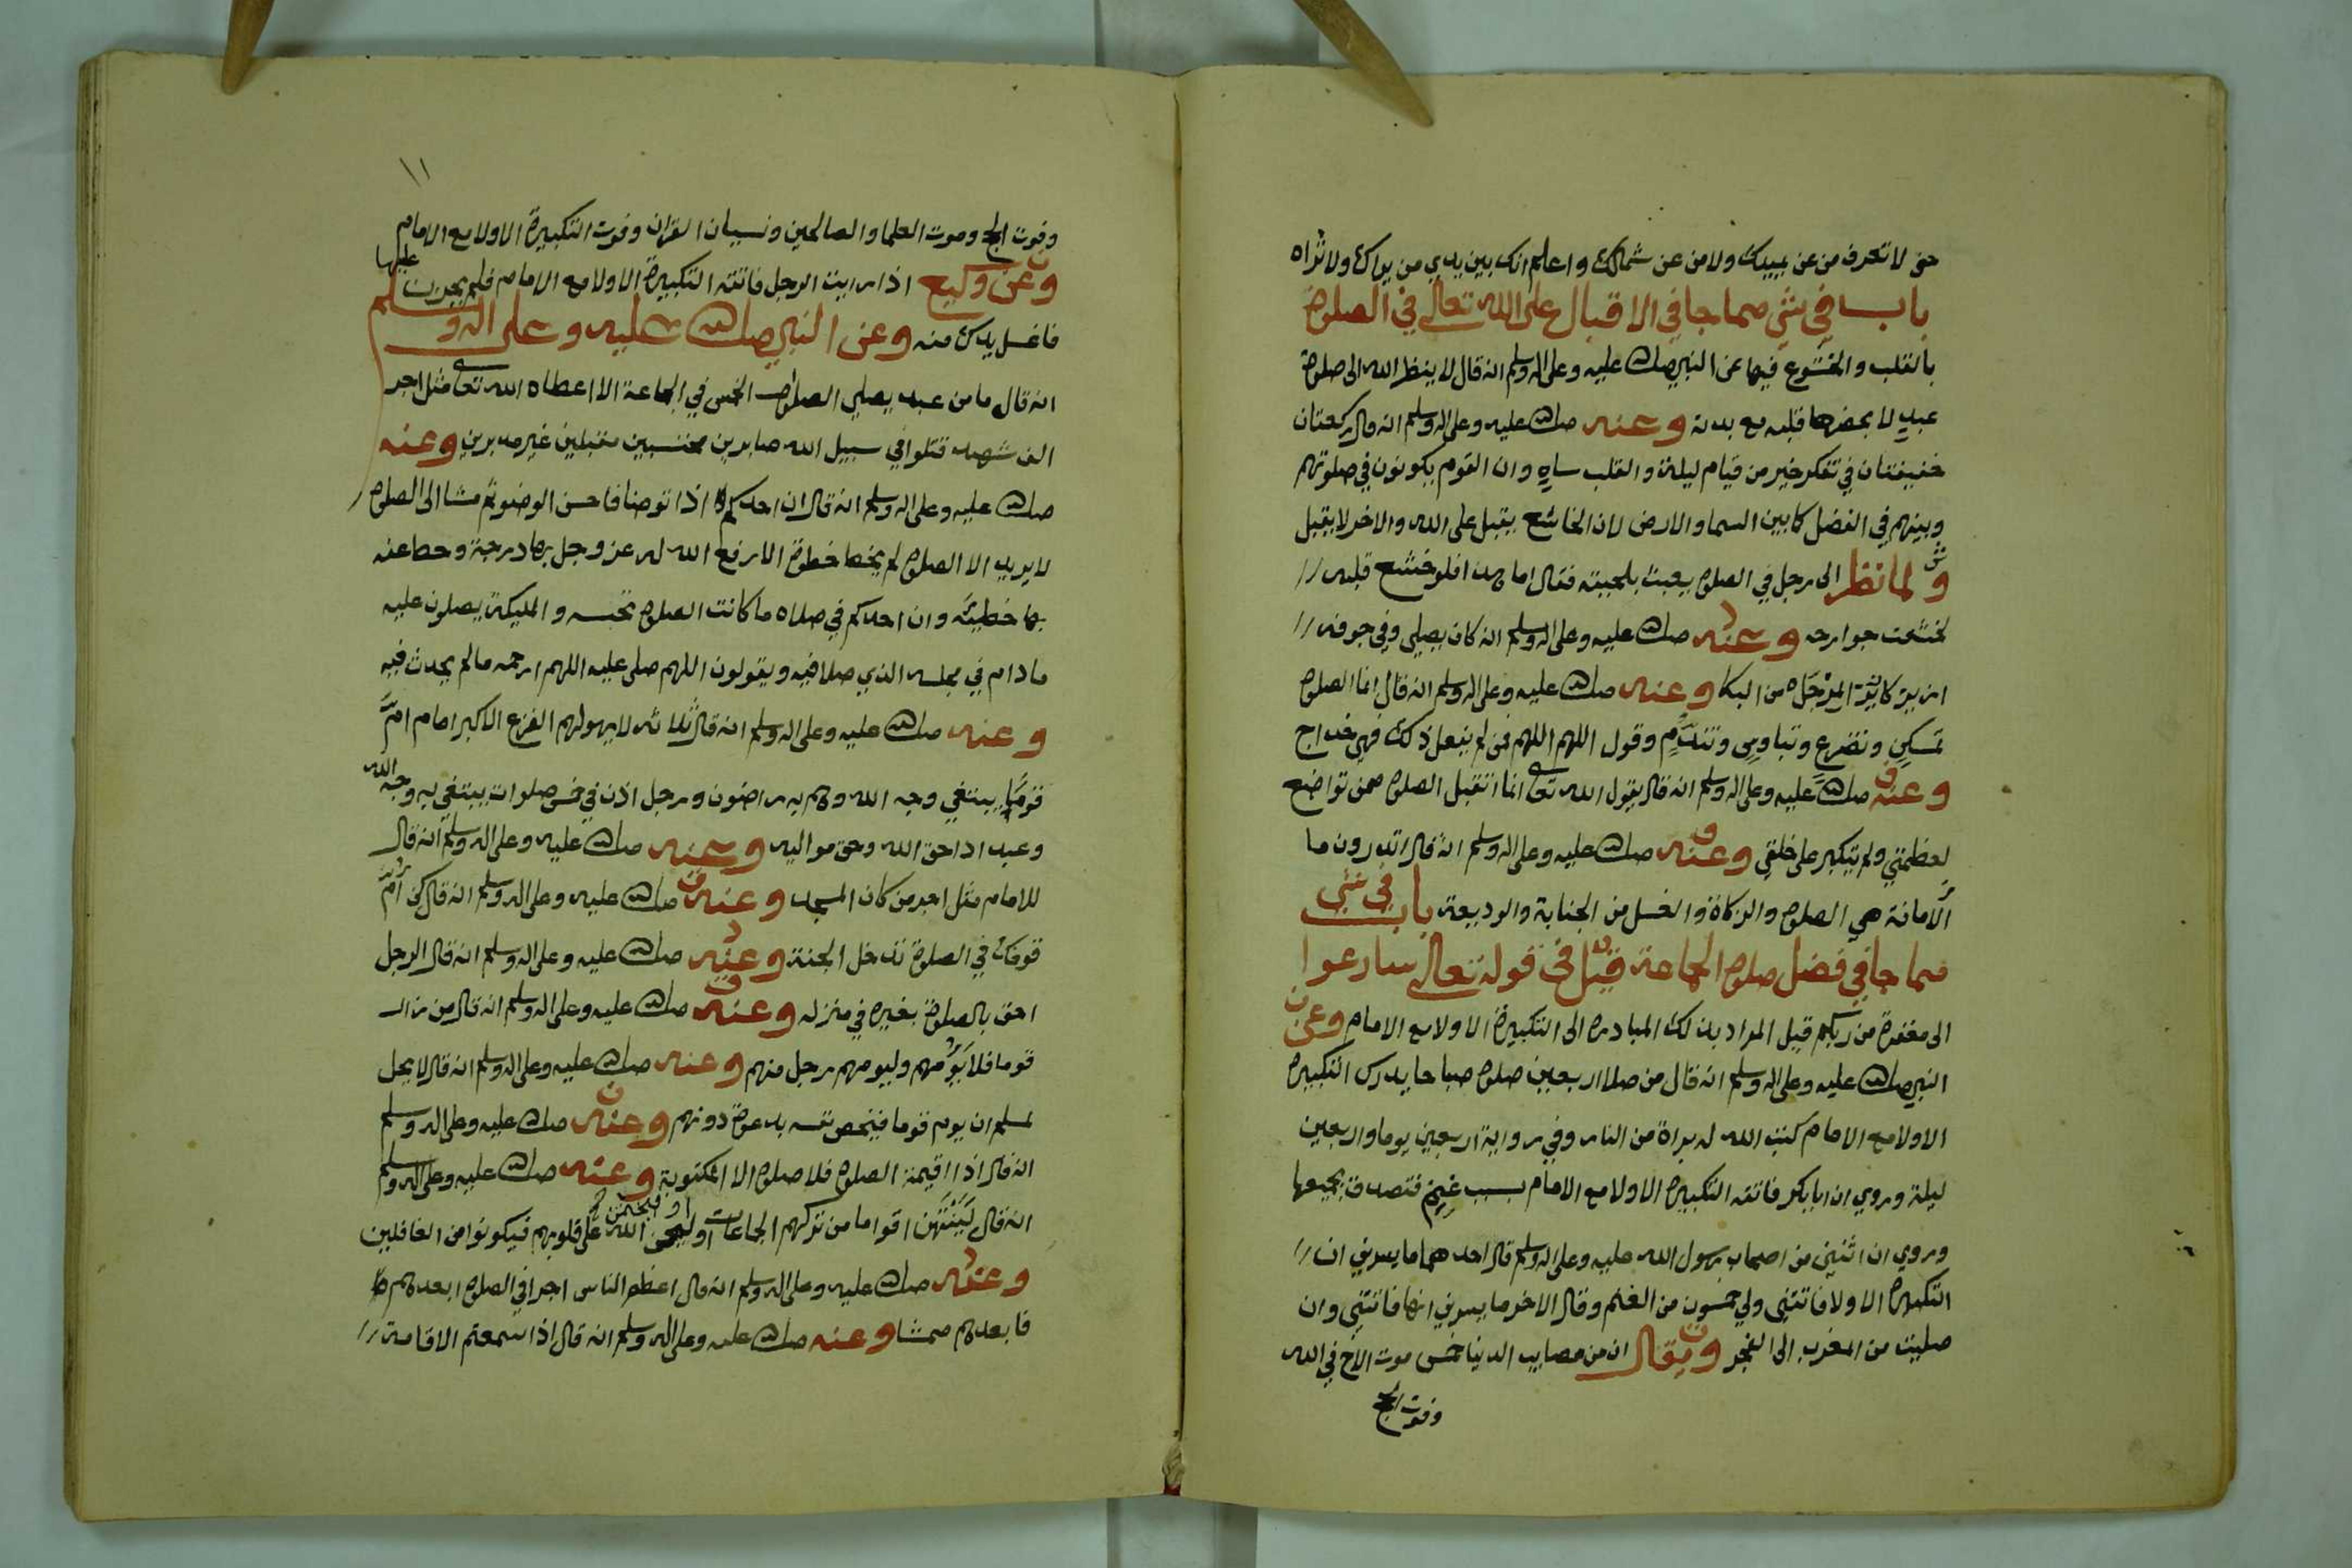 حتى لا تعرف من عن يمينك ولا من عن شمالك واعلم انك بين يدي من يراك ولا تراه
باب في شي مما جا في الاقبال على الله تعالى في الصلوة
بالقلب والخشوع فيها عن النبي صلى الله عليه وعلى اله وسلم انه قال لا ينظر الله الى صلوة
عبدٍ لا يحضرها قلبه مع بدنه وعنه صلى الله عليه وعلى اله وسلم انه قال ركعتان
خفيفتان في تفكر خير من قيام ليلة والقلب ساهٍ وان القوم يكونون في صلوتهم
وبينهم في الفضل كما بين السما والارض لان الخاشع يقبل على الله والاخر لا يقبل
و لما نظر الى رجل في الصلوة يعبث بلحيته فقال اما هذا فلو خشع قلبه
لخشعت جوارحه وعنه صلى الله عليه وعلى اله وسلم انه كان يصلي وفي جوفه
ازيز كازيز المِرْجَل من البكا وعنه صلى الله عليه وعلى اله وسلم انه قال انما الصلوة
تمسكن وتضرع وتباوس وتندُّم وقول اللهم اللهم فمن لم يفعل ذلك فهي خداج
وعنه صلى الله عليه وعلى اله وسلم انه قال يقول الله تعالى انما اتقبل الصلوة ممن تواضع
لعظمتي ولم يتكبر على خلقي وعنه صلى الله عليه وعلى اله وسلم انه قال اتدرون ما
الامانة هي الصلوة والزكاة والغسل من الجنابة والوديعة باب في شي
مما جا في فضل صلوة الجماعة قيل في قوله تعالى سارعوا
الى مغفرة من ربكم قيل المراد بذلك المبادرة الى التكبيرة الاولا مع الامام وعن
النبي صلى الله عليه وعلى اله وسلم انه قال من صلا اربعين صلوة صباحا يدرك التكبيرة
الاولا مع الامام كتب الله له براة من النار وفي رواية اربعين يوما واربعين
ليلة وروي ان ابا بكر فاتته التكبيرة الاولا مع الامام بسبب غنم فتصدق بجميعها
وروي ان اثنين من اصحاب رسول الله صلى الله عليه وعلى اله وسلم قال احدهما ما يسرني ان
التكبيرة الاولا فاتتني ولي خمسون من الغنم وقال الاخر ما يسرني انها فاتتني وان
صليت من المغرب الى الفجر ويقال ان من مصايب الدنيا خمس موت الاخ في الله
وفوت الحج
١١
وفوت الحج وموت العلما والصالحين ونسيان القران وفوت التكبيرة الاولا مع الامام
وعن وكيع اذا رايت الرجل فاتته التكبيرة الاولا مع الامام فلم يحزن عليها
فاغسل يدك منه وعن النبي صلى الله عليه وعلى اله وسلم
انه قال ما من عبد يصلي الصلوات الخمس في الجماعة الا اعطاه الله تعالى مثل اجر
الف شهيد قتلوا في سبيل الله صابرين محتسبين مقبلين غير مدبرين وعنه
صلى الله عليه وعلى اله وسلم انه قال ان احدكم اذا توضا فاحسن الوضو ثم مشا الى الصلوة
لا يريد الا الصلوة لم يخط خطوة الا رفع الله له عز وجل بها درجة وحط عنه
بها خطيئة وان احدكم في صلاه ما كانت الصلوة تحبسه والمليكة يصلون عليه
ما دام في مجلسه الذي صلا فيه ويقولون اللهم صلي عليه اللهم ارحمه ما لم يحدث فيه
وعنه صلى الله عليه وعلى اله وسلم انه قال ثلاثه لا يهولهم الفزع الاكبر امام امَّ
قومًا يبتغي وجه الله وهم به راضون ورجل اذن في خمس صلوات يبتغي به وجه الله
وعبد ادا حق الله وحق مواليه وعنه صلى الله عليه وعلى اله وسلم انه قال
للامام مثل اجر من كان المسجد وعنه صلى الله عليه وعلى اله وسلم انه قال كن امَّ
قومك في الصلوة تدخل الجنة وعنه صلى الله عليه وعلى اله وسلم انه قال الرجل
احق بالصلوة بغيره في منزله وعنه صلى الله عليه وعلى اله وسلم انه قال من زار
قوما فلا يَؤُمهم وليومهم رجل منهم وعنه صلى الله عليه وعلى اله وسلم انه قال لا يحل
لمسلم ان يوم قوما فيخص نفسه بدعوة دونهم وعنه صلى الله عليه وعلى اله وسلم
انه قال اذا اقيمت الصلوة فلا صلوة الا المكتوبة وعنه صلى الله عليه وعلى اله وسلم
انه قال لَيَنْتَهن اقواما من تركهم الجماعات او ليختمن الله على قلوبهم فيكونوا من الغافلين
وعنه صلى الله عليه وعلى اله وسلم انه قال اعظم الناس اجرا في الصلوة ابعدهم
فابعدهم ممشا وعنه صلى الله عليه وعلى اله وسلم انه قال اذا سمعتم الاقامة